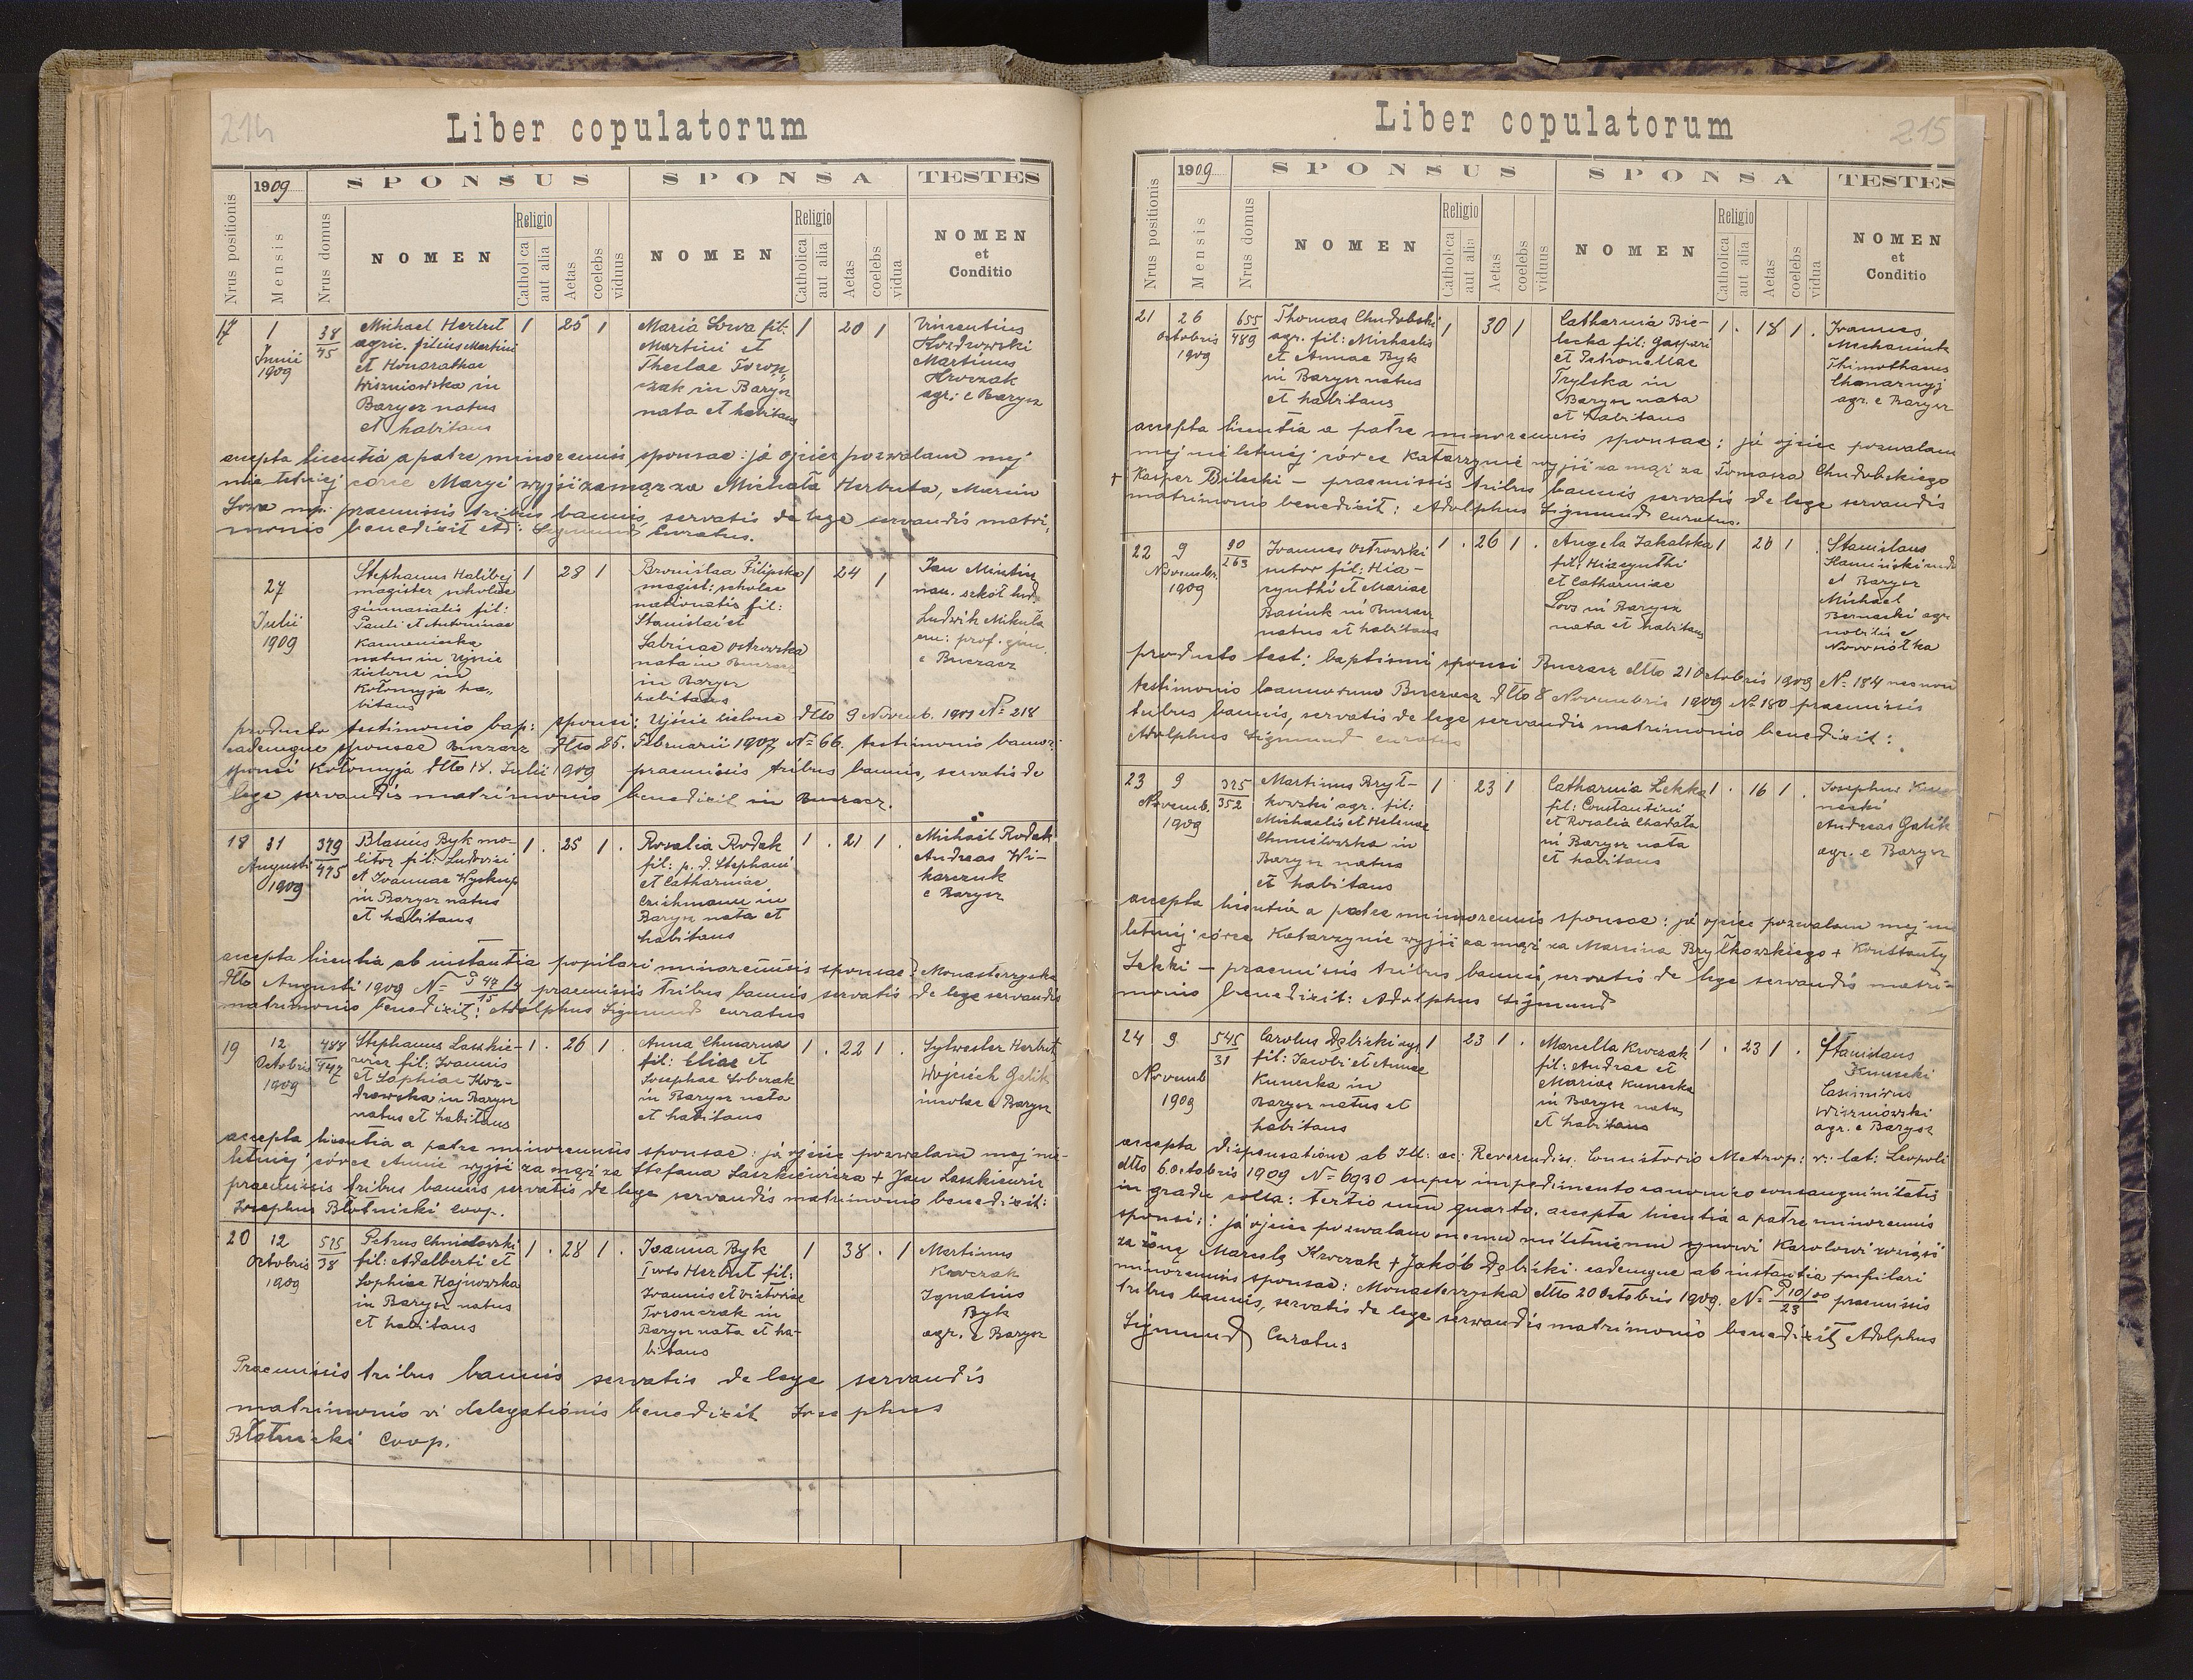 214
Liber copulatorum
1909
SPONSUS
SPONSA
TESTES
Nrus positionis
Mensis
Nrus domus
NOMEN
Religio
Catholica
aut alia
Aetas
coelebs
viduus
NOMEN
Religio
Catholica
aut alia
Aetas
coelebs
vidua
NOMEN
et
Conditio
17
1
Junii
1909
38
45
Michael Herbut
agric. filius Martini
et Honorathae
Wiszniowska in
Barysz natus
et habitans
1
25
1
Maria Sowa fil:
Martini et
Theclae Toron„
czak in Barysz
nata et habitans
1
20
1
Vincentius
Hozdrowski
Martinus
Krowczak
agr: e Barysz
accepta licentia a patre minorennis sponsae: ja ojciec pozwalam mej
nieletniej córce Maryi wyjść zamąż za Michała Herbuta, Marcin
Sowa mp. praemissis tribus bannis, servatis de lege servandis matri„
monio benedixit Ad: Sigmund Curatus.
27
Julii
1909
Stephanus Halibej
magister scholae
gimnasialis fil:
Pauli et Antoninae
Kamieniecka
natus in Ujście
zielone in
Kołomyja ha„
bitans
1
28
1
Bronislaa Filipska
magist: scholae
nationalis fil:
Stanislai et
Sabinae Ostrowska
nata in Buczacz
in Barysz
habitans
1
24
1
Jan Mientin
nau. szkół lud.
Ludwik Mikuła
em: prof. gim.
e Buczacz
producto testimonio bap: sponsi: Ujście zielone dtto 9 Novemb. 1901 № 218
eademque sponsae Buczacz dtto 25. Februarii 1907 № 66. testimonio bannor:
sponsi Kołomyja dtto 14. Julii 1909 praemissis tribus bannis, servatis de
lege servandis matrimonio benedixit in Buczacz.
18
31
Augusti
1909
379
475
Blasius Byk mo-
litor fil: Ludovici
et Joannae Wyskup
in Barysz natus
et habitans
1
25
1
Rosalia Rodak
fil: p. d. Stephani
et Catharinae
Czichmann in
Barysz nata et
habitans
1
21
1
Michael Rodak
Andreas Wi-
karczuk
e Barysz
accepta licentia ab instantia pupilari minorennis sponsae: Monasterzyska
dtto Augusti 1909 № praemissis tribus bannis servatis de lege servandis
matrimonio benedixit: Adolphus Sigmund curatus
19
12
Octobris
1909
484
Stephanus Laszkie-
wicz fil: Joannis
et Sophiae Hoz-
drowska in Barysz
natus et habitans
1
26
1
Anna Chmarna
fil: Eliae et
Josephae Sobczak
in Barysz nata
et habitans
1
22
1
Sylwester Herbut
Wojciech Galik
incolae e Barysz
accepta licentia a patre minorennis sponsae: ja ojciec pozwalam mej nie-
letniej córce Annie wyjść za mąż za Stefana Laszkiewicza + Jan Laszkiewicz
praemissis tribus bannis servatis de lege servandis matrimonio benedixit:
Josephus Błotnicki Coop.
20
12
Octobris
1909
38
Petrus Chmielowski
fil: Adalberti et
Sophiae Hajnowska
in Barysz natus
et habitans
1
28
1
Joanna Byk
I voto Herbut fil:
Joannis et Victoriae
Toronczak in
Barysz nata et ha-
bitans
1
38
1
Martinus
Krowczak
Ignatius
Byk
agr. e Barysz
Praemissis tribus bannis servatis de lege servandis
matrimonio vi delegationis benedixit Josephus
Błotnicki Coop.
215
Liber copulatorum
1909
SPONSUS
SPONSA
TESTES
Nrus positionis
Mensis
Nrus domus
NOMEN
Religio
Catholica
aut alia
Aetas
coelebs
viduus
NOMEN
Religio
Catholica
aut alia
Aetas
coelebs
vidua
NOMEN
et
Conditio
21
26
Octobris
1909
655
489
Thomas Chudobski
agr. fil: Michaelis
et Annae Byk
in Barysz natus
et habitans
1
30
1
Catharina Bie-
lecka fil: Gaspari
et Petronellae
Trylska in
Barysz nata
et habitans
1
18
1
Joannes
Mechaniuk
Thimotheus
Chmarnyj
agr. e Barysz
accepta licentia a patre minorennis sponsae: ja ojciec pozwalam
mej nieletniej córce Katarzynie wyjść za mąż za Tomasza Chudobskiego
+ Kasper Bilecki – praemissis tribus bannis servatis de lege servandis
matrimonio benedixit: Adolphus Sigmund curatus.
22
9
Novembr.
1909
90
263
Joannes Ostrowski
sutor fil: Hia-
cynthi et Mariae
Basiuk in Buczacz
natus et habitans
1
26
1
Angela Zakalska
fil: Hiacynthi
et Catharinae
Łoos in Barysz
nata et habitans
1
20
1
Stanislaus
Kamiński
e Barysz
Michael
Biernacki agr.
nobilis e
Nowosiółka
producto test: baptismi sponsi Buczacz dtto 21 Octobris 1909 № 184 necnon
testimonio bannorum Buczacz dtto 8 Novembris 1909 № 180 praemissis
tribus bannis, servatis de lege servandis matrimonio benedixit:
Adolphus Sigmund curatus
23
9
Novemb.
1909
325
352
Martinus Brył-
kowski agr. fil:
Michaelis et Helenae
Chmielowska in
Barysz natus
et habitans
1
23
1
Catharina Lekka
fil: Constantini
et Rosalia Charata
in Barysz nata
et habitans
1
16
1
Josephus
Andreas Galik
agr. e Barysz
accepta licentia a patre minorennis sponsae: ja ojciec pozwalam mej nie
letniej córce Katarzynie wyjść za mąż za Marcina Bryłkowskiego + Konstanty
Lekki – praemissis tribus bannis, servatis de lege servandis matri-
monio benedixit: Adolphus Sigmund
24
9
Novemb
1909
545
31
Carolus Dębicki agr
fil: Jacobi et Annae
Kunecka in
Barysz natus et
habitans
1
23
1
Marcella Krowczak
fil: Andrae et
Mariae Kunecka
in Barysz nata
et habitans
1
23
1
Stanislaus
Kunecki
Casimirus
Wiszniowski
agr. e Barysz
accepta dispensatione ab Ill: ac: Reverendiss. Consistorio Metrop: r: lat: Leopoli
dtto 6 Octobris 1909 № 6930 super impedimento canonico consanguinitatis
in gradu colla: tertio cum quarto. accepta licentia a patre minorennis
sponsi: ja ojciec pozwalam memu nieletniemu synowi Karolowi wziąść
za żonę Marcelę Krowczak + Jakób Dębicki. eademque ab instantia pupilari
minorennis sponsae: Monasterzyska dtto 20 Octobris 1909. № P 10/00 23 praemissis
tribus bannis, servatis de lege servandis matrimonio benedixit Adolphus
Sigmund Curatus